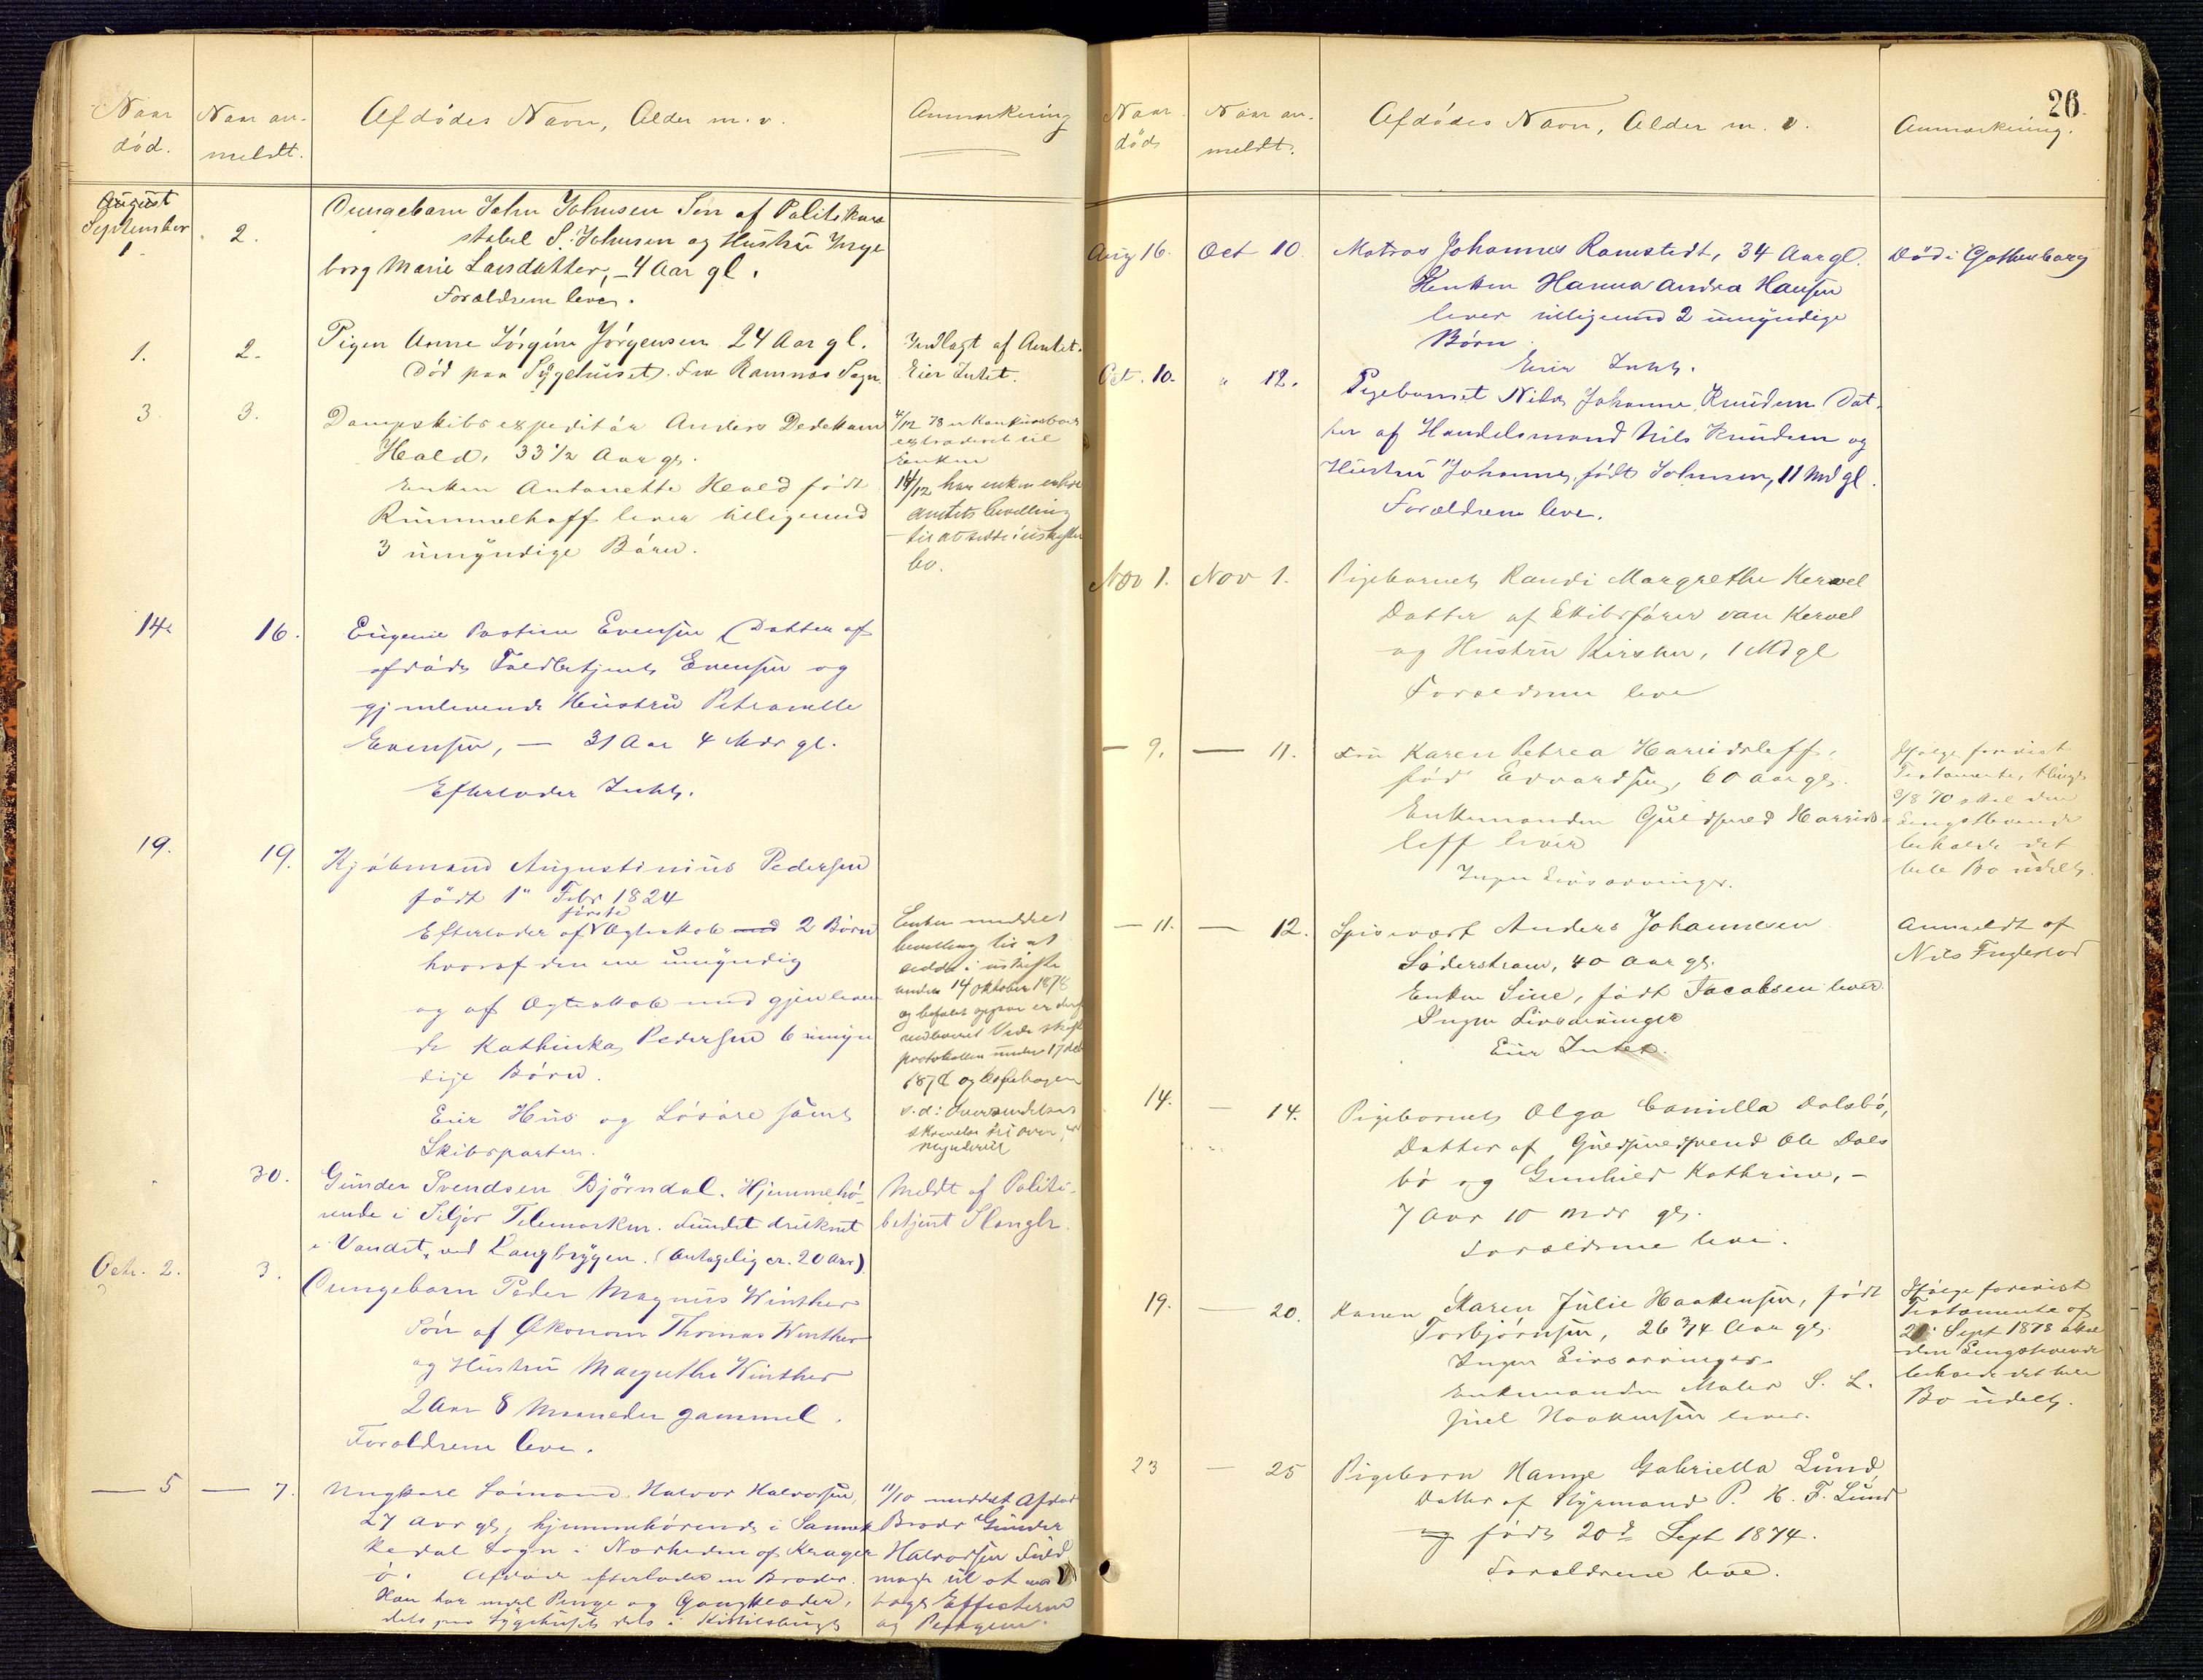 Naar død. Naar anmeldt. Afdødes Navn, Alder m.v. Anmærkning
August
September
1. 2. Drengebarn John Johnsen Søn af Politikon
stabel S. Johnsen og Hustru Inge
borg Marie Larsdatter, – 4 Aar gl.
Forældrene lever.
1. 2. Pigen Anne Jørgine Jørgensen 24 Aar gl. Indlagt af Amtet.
Død paa Sygehuset. Fra Ramnæs Sogn. Eier Intet.
3 3. Dampskibsexpeditør Anders Dedekam 4/12 78 er Konkursboet
Heald, 33 1/2 Aar gl. extraderet til
Enken Antonette Heald født Enken
Rummelhoff lever tilligemed 14/12 har enken erholdt
3 umyndige Børn. amtets bevilling
til at sidde i uskiftet
bo.
14. 16. Eugenie Pastine Evensen (Datter af
afdøde Toldbetjent Evensen og
gjenlevende Hustru Petronelle
Evensen, — 31 Aar 4 Mdr gl.
Efterlader Intet.
19. 19. Kjøbmand Augustinius Pedersen
født 1" Febr 1824
første
Efterlader af Ægteskab med 2 Børn Enken meddelt
hvoraf den ene umyndig bevilling til at
og af Ægteskab med gjenleven sidde i uskifte
de Kathinka Pedersen 6 umyn under 14 Oktober 1878
dige Børn.
Eier Hus og Løsøre samt
Skibsparter.
30. Gunder Svendsen Bjørndal. Hjemmehø- Meldt af Politi-
rende i Seljor Telemarken. Fundet druknet betjent Stangh.
i Vandet, ved Langbryggen. (Antagelig ca. 20 Aar).
Octr. 2. 3. Drengebarn Peder Magnus Winther
Søn af Økonom Thomas Winther
og Hustru Margrethe Winther
2 Aar 8 Maaneder gammel.
Forældrene leve.
— 5 — 7. Ungkarl Sømand Halvor Halvorsen, 11/10 meddelt Afdødes
27 Aar gl, hjemmehørende i Sannik Broder Gunder
kedal Sogn i Nærheden af Kragerø Halvorsen Fuld
ø. Afdøde efterlader en Broder. magt til at mod
Han har noget Penge og Gangklæder, tage Effecterne
dels paa Sygehuset dels i og Pengene.
26.
Naar død Naar anmeldt. Afdødes Navn, Alder m.v. Anmærkning.
Aug 16. Oct 10. Matros Johannes Ramstedt, 34 Aar gl. Død i Gothenborg
Enken Hanna Andrea Hansen
lever tilligemed 2 umyndige
Børn.
Eier Intet.
Oct. 10. " 12. Pigebarnet Nilda Johanne Knudsen Dat-
ter af Handelsmand Nils Knudsen og
Hustru Johanne, født Johnsen, 11 Md gl.
Forældrene leve.
Nov 1. Nov 1. Pigebarnet Randi Margrethe Kervel
Datter af Skibsfører van Kervel
og Hustru Kirsten, 1 Md gl
Forældrene leve
— 9. — 11. Fru Karen Petrea Harridsleff, Ifølge forevist
fød Edvardsen, 60 Aar gl. Testamente, thingl.
Enkemanden Guldsmed Harrids 3/8 70 skal den
leff lever Længstlevende
Ingen Livsarvinger. beholde det
hele Bo udelt.
— 11. — 12. Spisevært Anders Johannesen Anmeldt af
Søderstrøm, 40 Aar gl. Nils Fuglerod
Enken Sine, født Jacobsen lever.
Ingen Livsarvinger
Eier Intet.
14. — 14. Pigebarnet Olga Camilla Dalsbø,
Datter af Guldsmedsvend Ole Dals
bø og Gunhild Kathrine, –
7 Aar 10 Mdr gl.
Forældrene leve.
19. — 20. Konen Maren Julie Haakensen, født Ifølge forevist
Torbjørnsen, 26 3/4 Aar gl. Testamente af
Ingen Livsarvinger. Sept 1878 skal
Enkemanden Maler S. L. den Længstlevende
Juel Haakensen lever. beholde det hele
Bo udelt.
23 — 25 Pigebarn Hanne Gabriella Lund,
Datter af Styrmand P. H. F. Lund
og født 20de Sept 1874.
Forældrene leve.